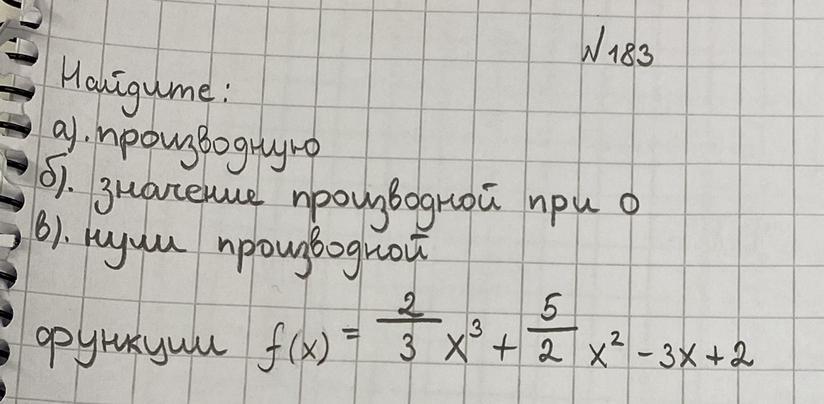 N183
Найдите:
а). производную
б). значение производной при 0
в). нули производной
функции f(x) = 2/3 x³ + 5/2 x² - 3x + 2